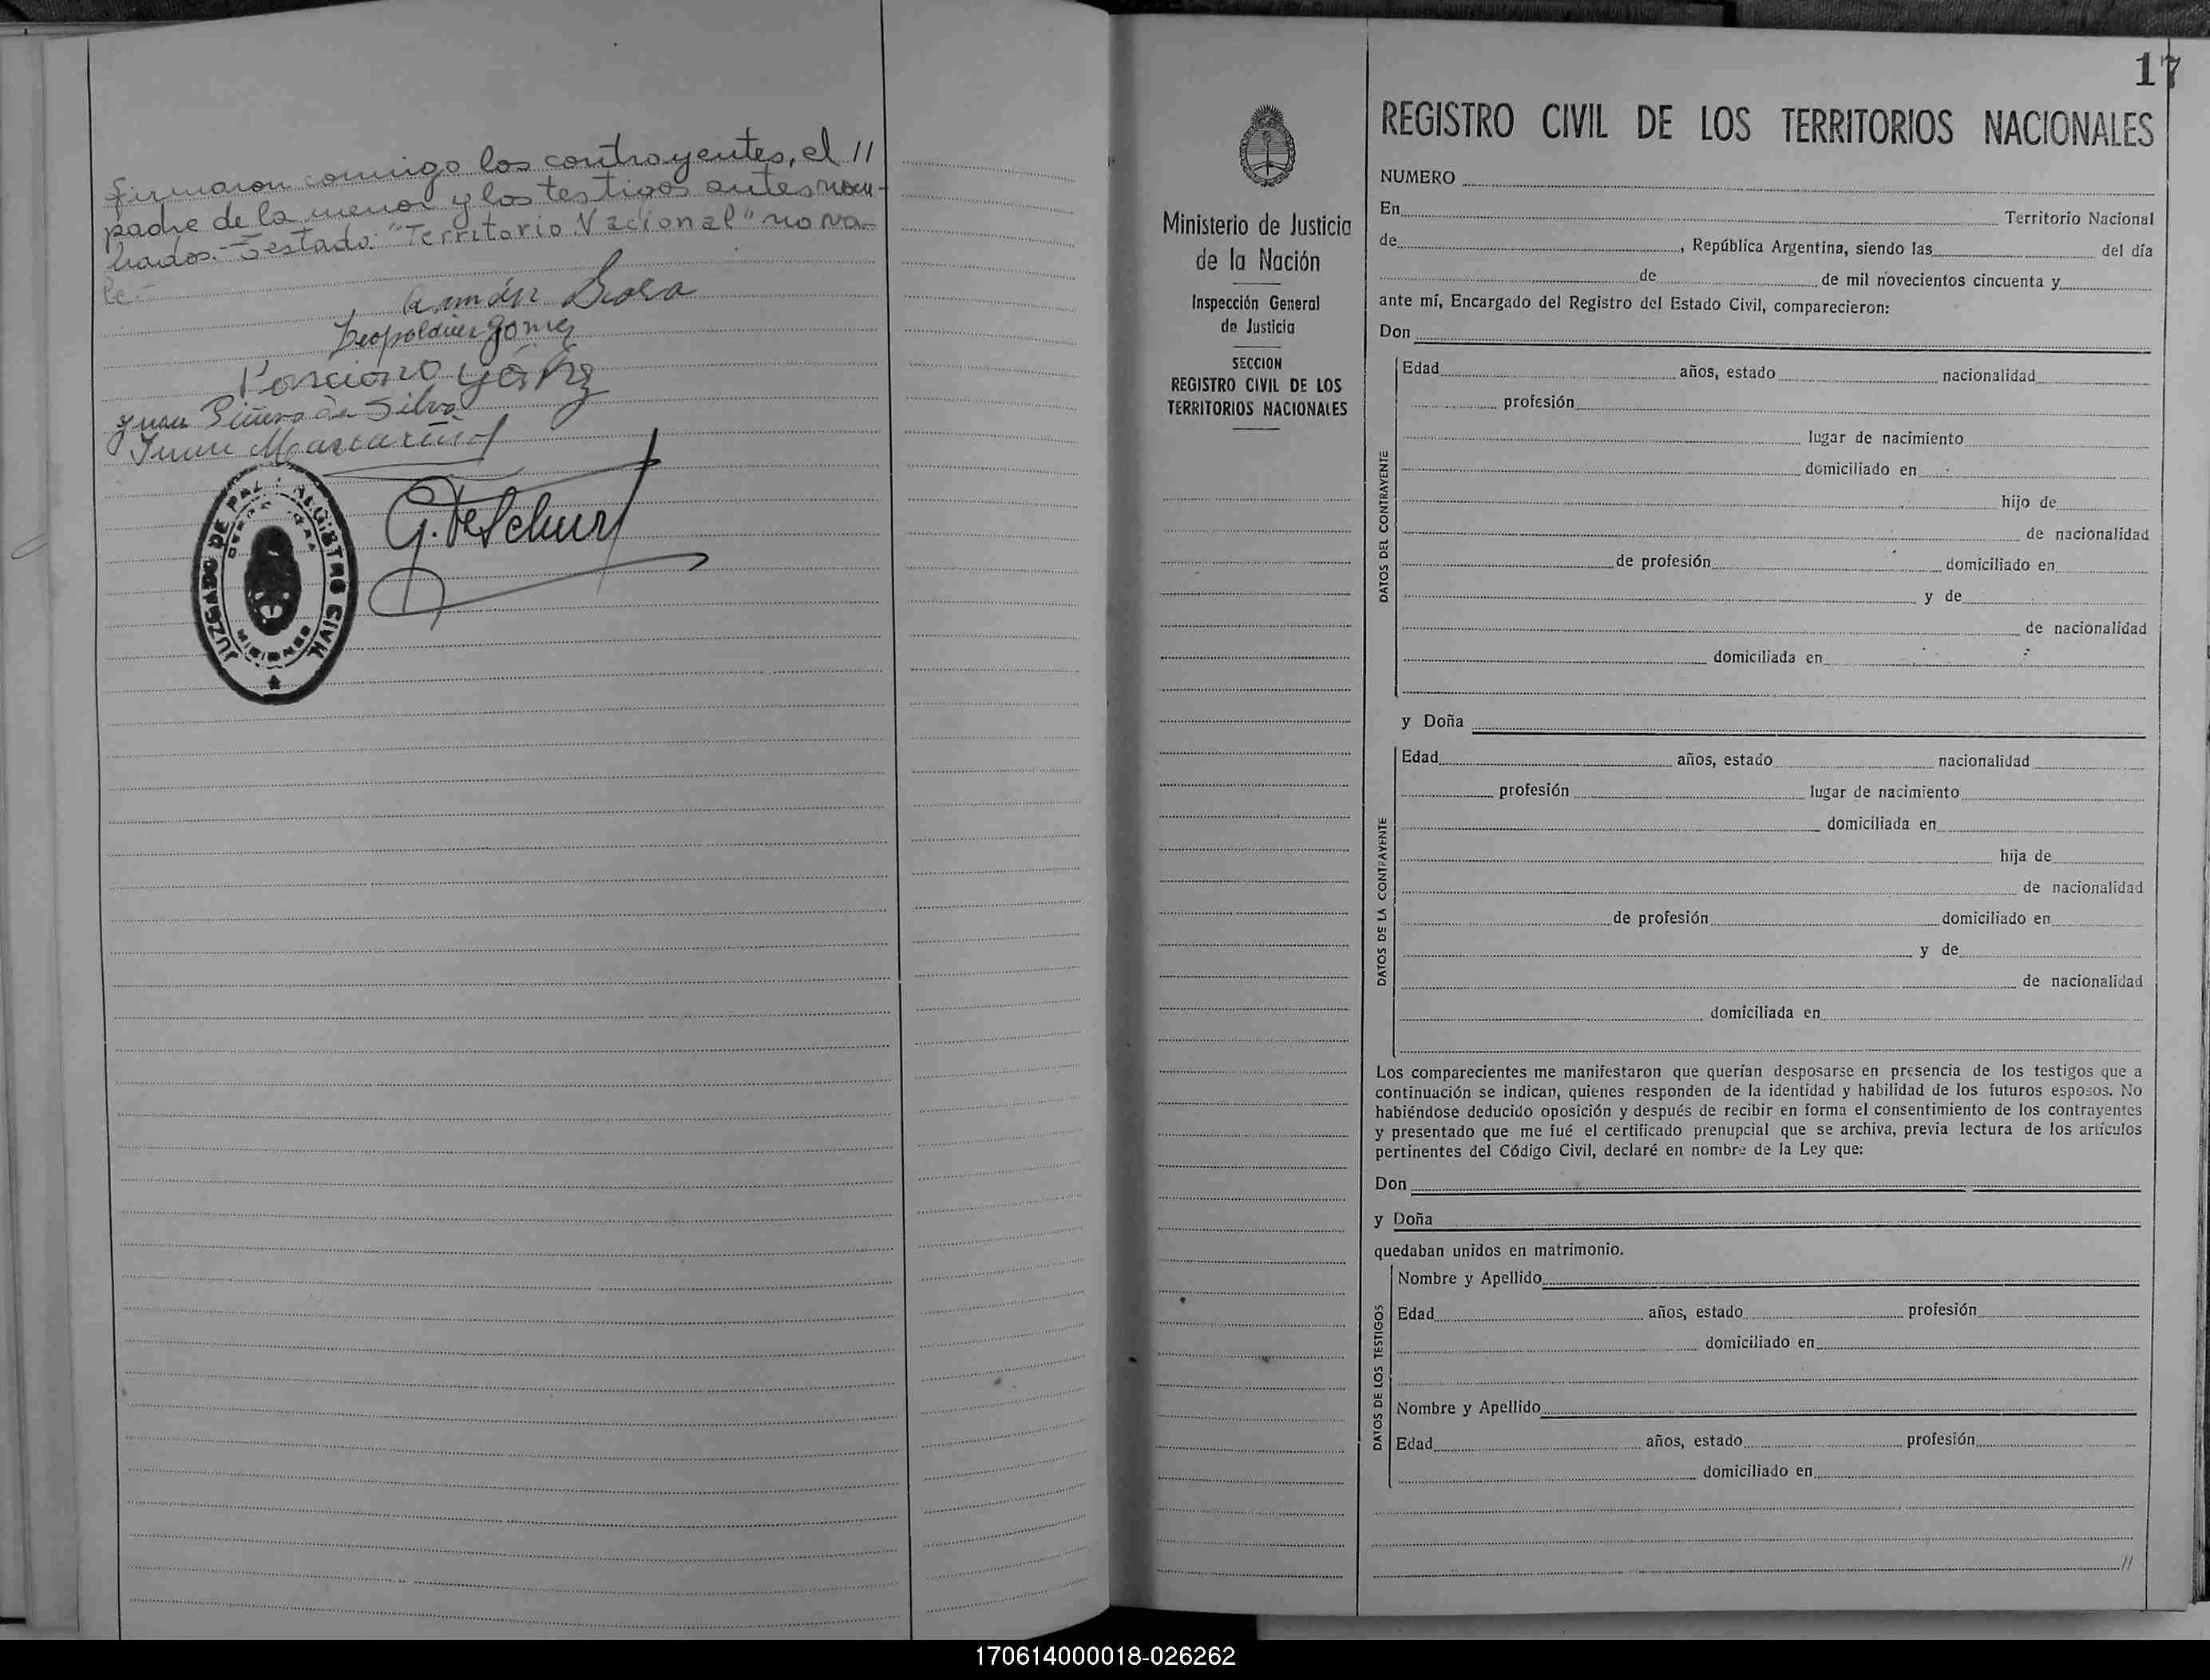 firmaron conmigo los contrayentes, el //
padre de la menor y los testigos antes nom-
brados.- Testado: "Territorio Nacional" no va-
le.-
Ramón
Leopoldina Gomez
Ponciano
Juan de Silva
Juan
JUZGADO DE PAZ Y REGISTRO CIVIL
MISIONES
17
REGISTRO CIVIL DE LOS TERRITORIOS NACIONALES
Ministerio de Justicia
de la Nación
Inspección General
de Justicia
SECCION
REGISTRO CIVIL DE LOS
TERRITORIOS NACIONALES
NUMERO
En Territorio Nacional
de , República Argentina, siendo las del día
de de mil novecientos cincuenta y
ante mí, Encargado del Registro del Estado Civil, comparecieron:
Don
DATOS DEL CONTRAYENTE
Edad años, estado nacionalidad
profesión
lugar de nacimiento
domiciliado en
hijo de
de nacionalidad
de profesión domiciliado en
y de
de nacionalidad
domiciliada en
y Doña
DATOS DE LA CONTRAYENTE
Edad años, estado nacionalidad
profesión lugar de nacimiento
domiciliada en
hija de
de nacionalidad
de profesión domiciliado en
y de
de nacionalidad
domiciliada en
Los comparecientes me manifestaron que querían desposarse en presencia de los testigos que a
continuación se indican, quienes responden de la identidad y habilidad de los futuros esposos. No
habiéndose deducido oposición y después de recibir en forma el consentimiento de los contrayentes
y presentado que me fué el certificado prenupcial que se archiva, previa lectura de los artículos
pertinentes del Código Civil, declaré en nombre de la Ley que:
Don
y Doña
quedaban unidos en matrimonio.
DATOS DE LOS TESTIGOS
Nombre y Apellido
Edad años, estado profesión
domiciliado en
Nombre y Apellido
Edad años, estado profesión
domiciliado en
//
170614000018-026262